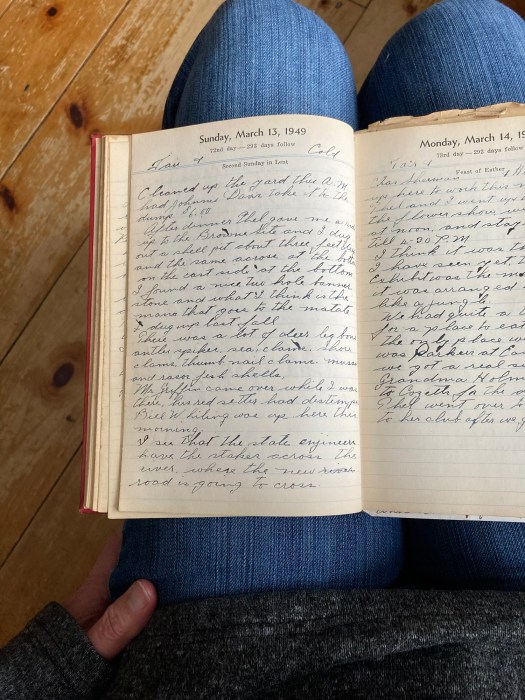 Sunday, March 13, 1949
72nd day — 293 days follow
Second Sunday in Lent
Fair & Cold
Cleaned up the yard this A.M.
had Johnnie Darr take it to the
dump $6.50
After dinner Phel gave me a
up to the Site and I dug
out a shell pit about three feet
and the same across at the
on the east side at the bottom
I found a nice two hole banner
stone and what I think is the
mano that goes to the matate
I dug up last fall.
There was a lot of deer leg bone
antler spikes, sea clams, short
clams, thumb nail clams,
and razor fish shells.
Mr. Griffin came over while I was
there, his red setter had distemper
Bill Whiting was up here this
morning
I see that the state engineers
have the stakes across the
river, where the new
road is going to cross.
Monday, March 14, 19
73rd day — 292 days follow
Feast of Esther
up here to work this
and I went up
the flower show
at noon, and stay
till 4-30 P.M.
I think it was the
I have seen yet
Exhibit was the
it was arranged
like a jungle.
We had quite a
for a place to
the only place we
was Parkers at
we got a real
Grandma Holm
to for the
Phel went over
to her club after we